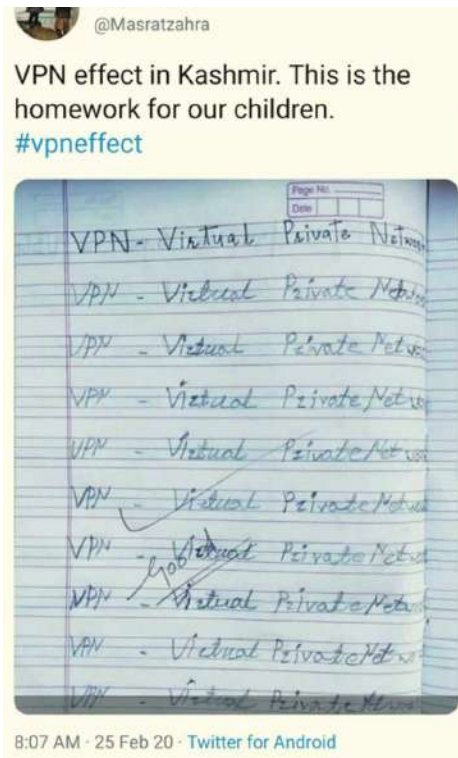 @Masratzahra
VPN effect in Kashmir. This is the
homework for our children.
#vpneffect
Page No.
Date
VPN - Virtual Private Networ
VPN - Virtual Private Networ
VPN - Virtual Private Netwo
VPN - Virtual Private Netwo
VPN - Virtual Private Netwo
VPN - Virtual Private Netwo
VPN - Virtual Private Netwo
Good
VPN - Virtual Private Netwo
VPN - Virtual Private Netwo
VPN - Virtual Private Netwo
8:07 AM · 25 Feb 20 · Twitter for Android